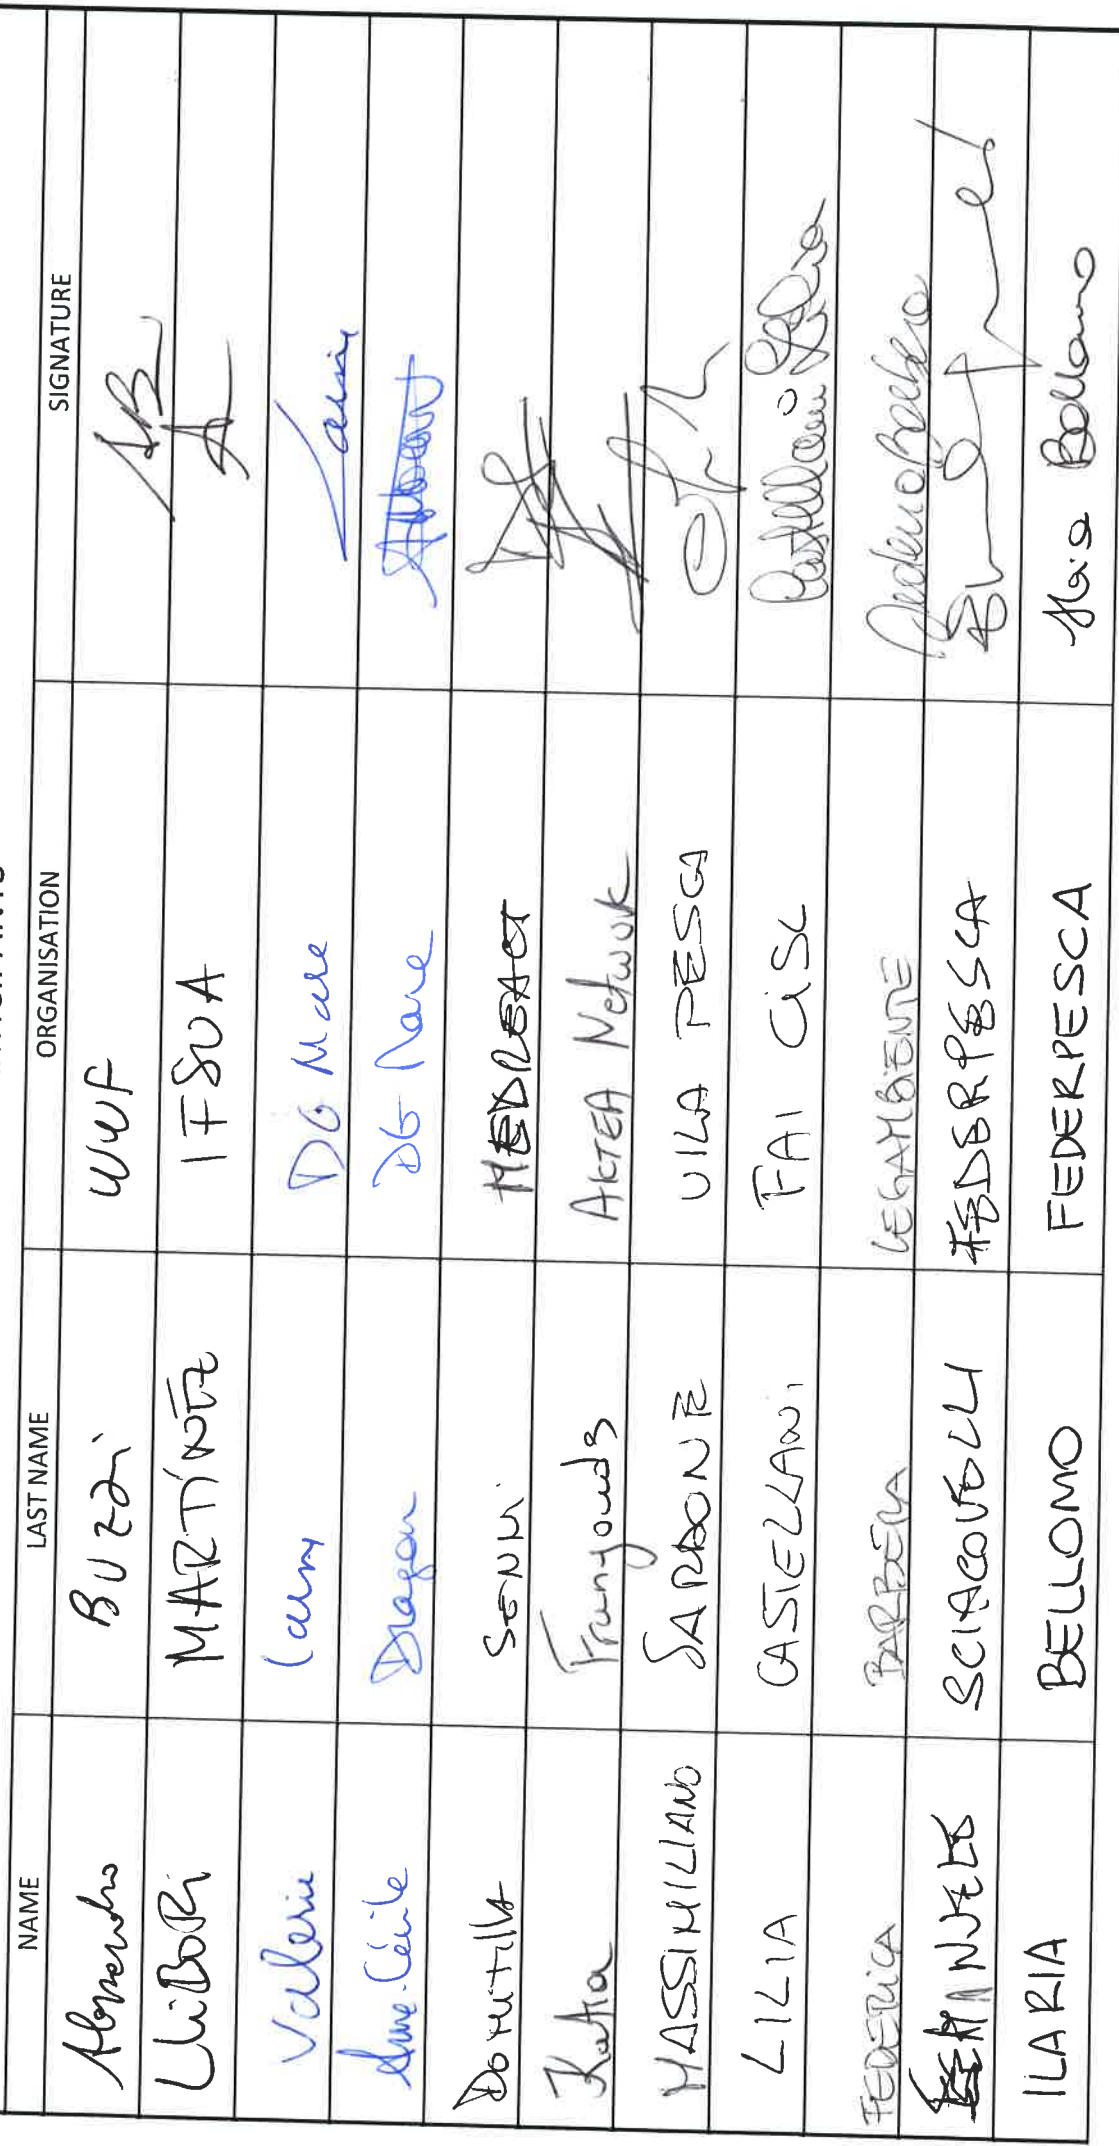 NAME LAST NAME ORGANISATION SIGNATURE
Alessandro Buzzi WWF AB
LLIBORI MARTÍNEZ IFSUA
Valerie Lainy DG Mare Lainy
Anne-Cécile Dragon DG Mare
Domitilla SENNI MEDREACT
Katia Frangoudes AKTEA Network
MASSIMILIANO SARDONE UILA PESCA
LILIA CASTELLANI FAI CISL Castellani Lilia
FEDERICA BARBERA LEGAMBIENTE Federica Barbera
EMANUELE SCIACOVELLI FEDERPESCA
ILARIA BELLOMO FEDERPESCA Ilaria Bellomo